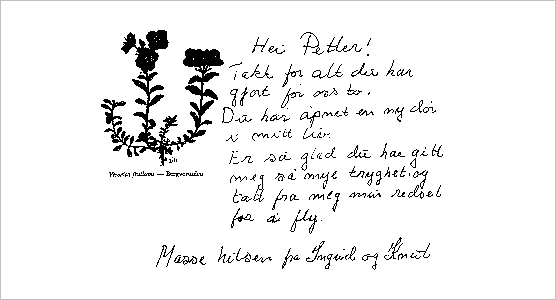 Hei Petter!
Takk for alt du har
gjort for oss to.
Du har åpnet en ny dør
i mitt liv.
Er så glad du har gitt
meg så mye trygghet og
tatt fra meg min redsel
for å fly.
Veronica fruticans — Bergveronika
Masse hilsen fra Ingrid og Knut